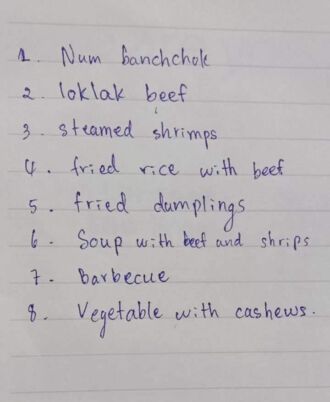 1. Num banchchok
2. loklak beef
3. steamed shrimps
4. fried rice with beef
5. fried dumplings
6. Soup with beef and shrips
7. Barbecue
8. Vegetable with cashews.